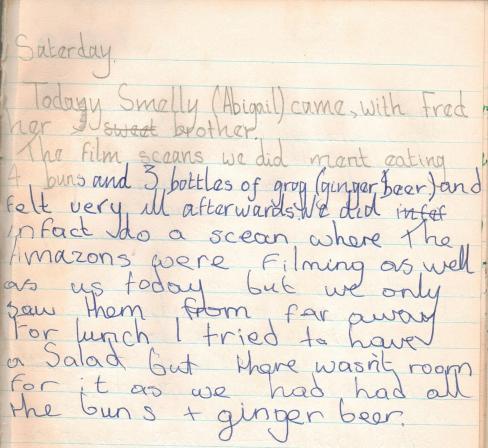 Saterday.
Todagy Smelly (Abigail) came, with Fred
her sweet brother.
The film sceans we did ment eating
4 buns and 3 bottles of grog (ginger beer) and
felt very ill afterwards. We did intef
infact do a scean where The
Amazons were Filming as well
as us today but we only
saw them from far away
For lunch I tried to have
a Salad but there wasn't room
for it as we had had all
the buns + ginger beer.